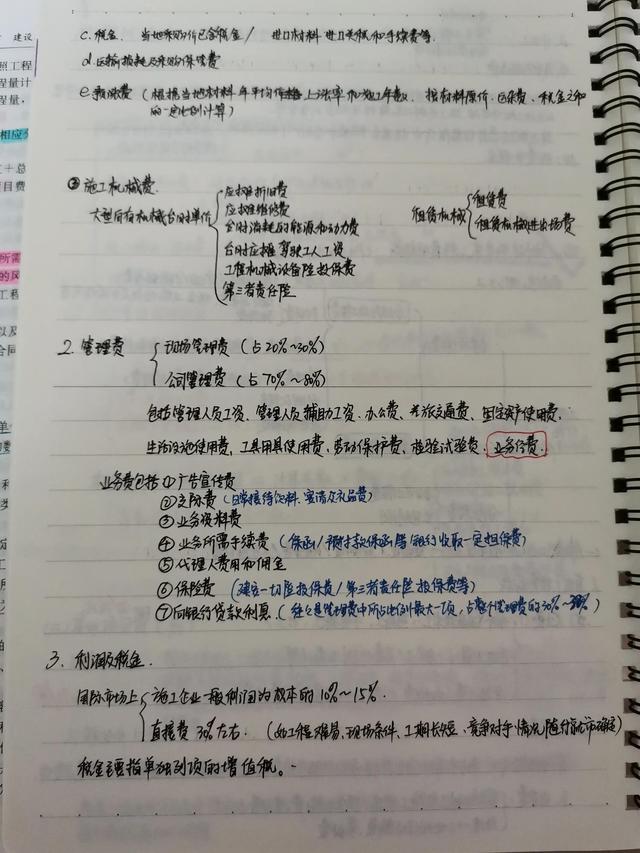 c. 税金. 当地采购价已含税金 / 进口材料 进口关税和手续费等.
d. 运输损耗及采购保管费
e. 预涨费 (根据当地材料年平均价格上涨率和施工年数, 按材料原价、运杂费、税金之和
的一定比例计算)
② 施工机械费.
大型自有机械台时单价
应摊折旧费
应摊维修费
台时消耗的能源和动力费
台时应摊驾驶工人工资
工程机械设备险投保费
第三者责任险
租赁机械
租赁费
租赁机械进出场费
2. 管理费
现场管理费 (占20%~30%)
公司管理费 (占70%~80%)
包括管理人员工资、管理人员辅助工资、办公费、差旅交通费、固定资产使用费、
生活设施使用费、工具用具使用费、劳动保护费、检验试验费、业务经费.
业务费包括 ① 广告宣传费
② 交际费 (日常接待饮料、宴请及礼品费)
③ 业务资料费
④ 业务所需手续费 (保函/预付款保函等 银行收取一定担保费)
⑤ 代理人费用和佣金
⑥ 保险费 (建安一切险投保费/第三者责任险投保费等)
⑦ 向银行贷款利息. (往往是管理费中所占比例最大一项, 占整个管理费的30%~
3. 利润及税金.
国际市场上
施工企业一般利润为成本的10%~15%.
直接费30%左右. (如工程难易、现场条件、工期长短、竞争对手情况随行就市确定)
税金主要指单独列项的增值税.
建设
照工程
程量计
程量,
相应
总
目费
所需
的风
工程
以及
合同